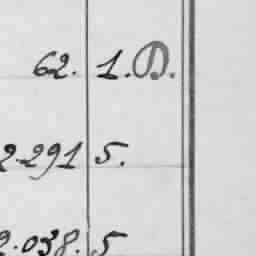 62. 1. D.
2.291 5.
2.038. 5